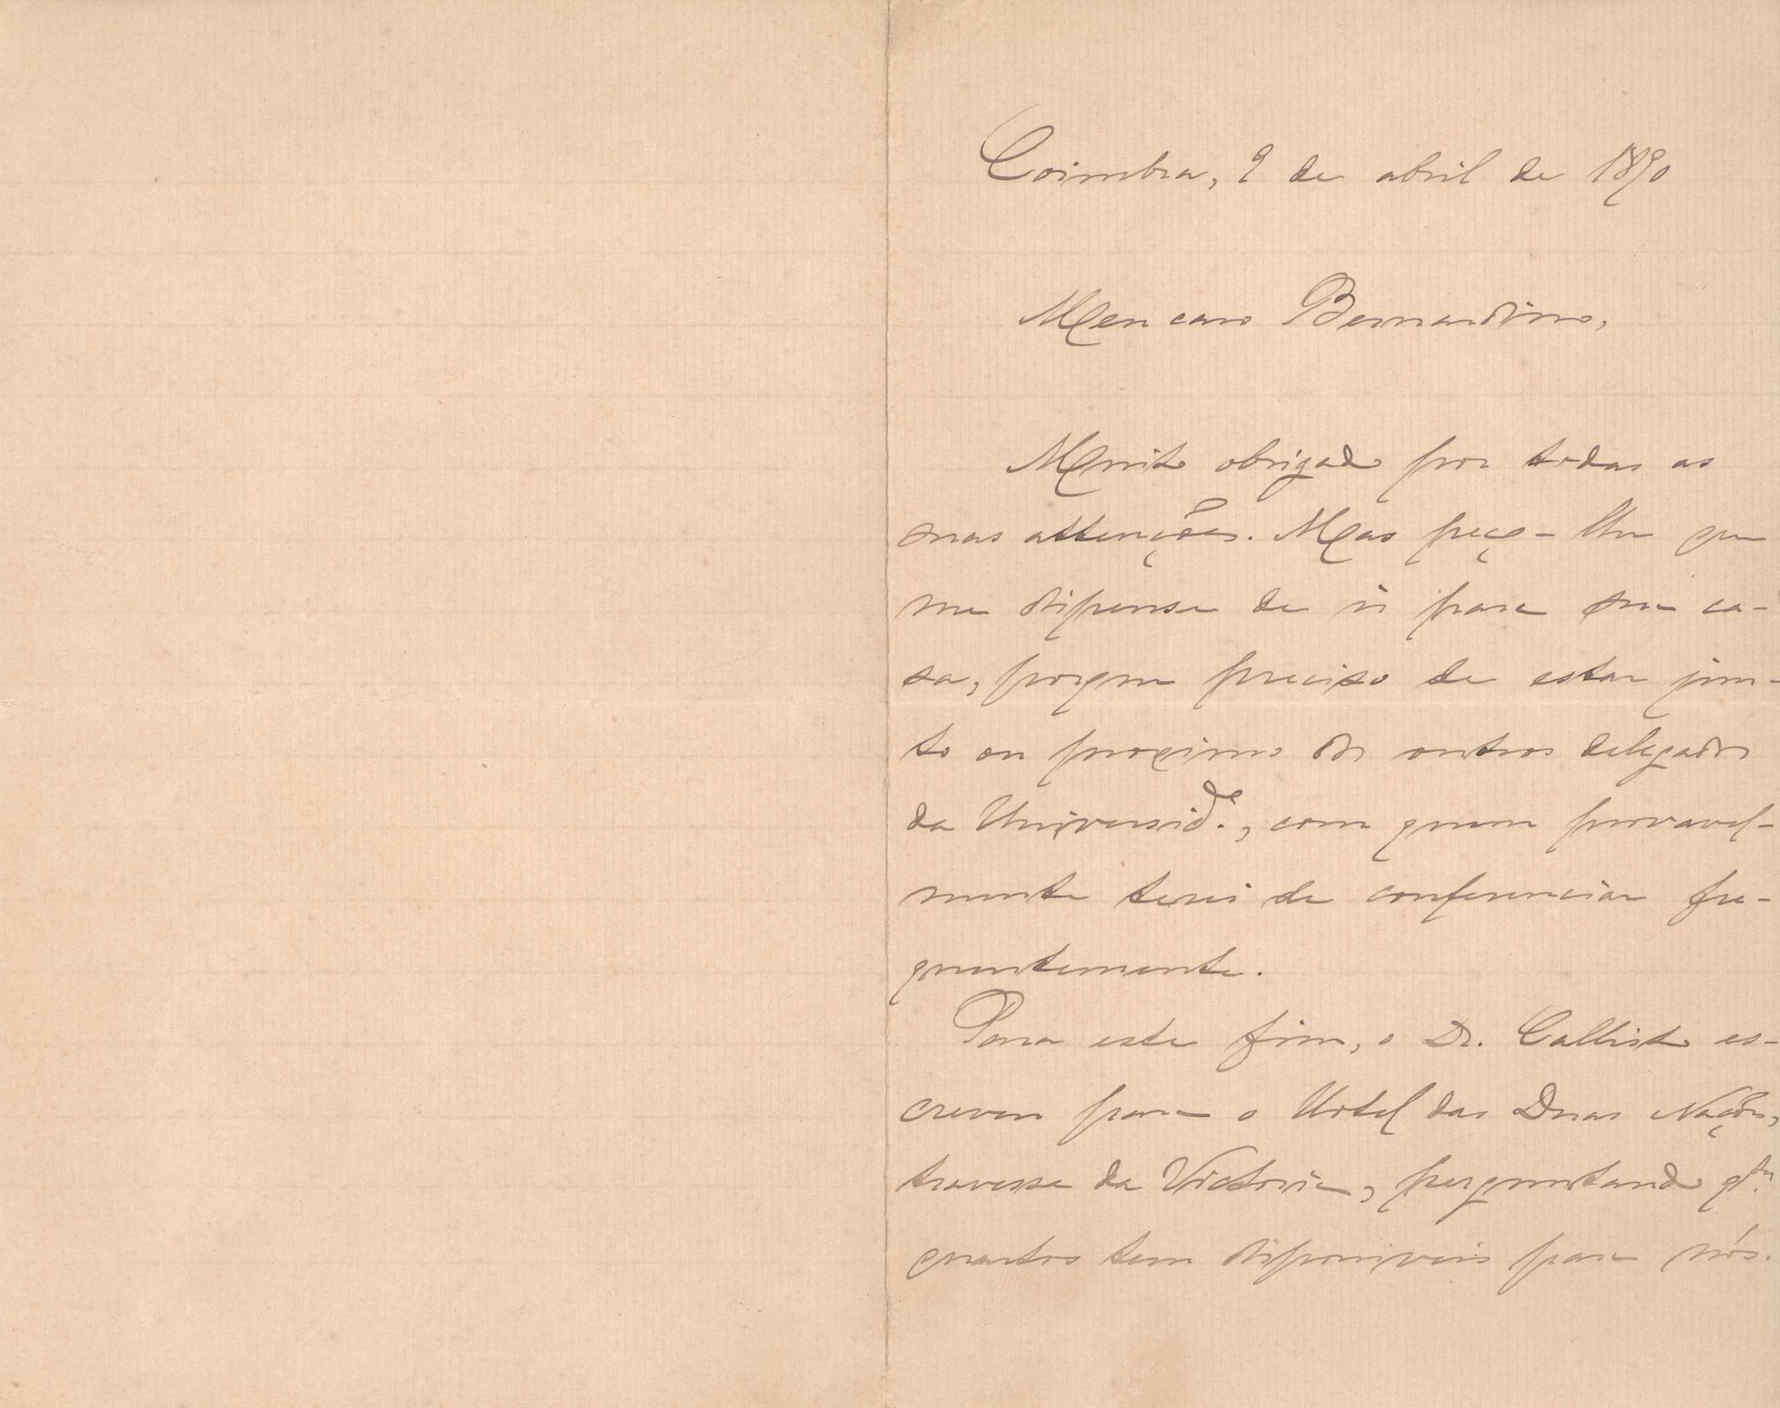 Coimbra, 9 de abril de 1890
Meu caro Bernardino,
Muito obrigado por todas as
suas attenções. Mas peço-lhe que
me dispense de ir para sua ca-
sa, porque preciso de estar jun-
to ou proximo dos outros delegados
da Universid.e, com quem provavel-
mente terei de conferenciar fre-
quentemente.
Para este fim, o Dr. Callisto es-
creveu para o Hotel das Duas Nações,
travessa da Victoria, perguntando q.tos
quartos tem disponiveis para nós.